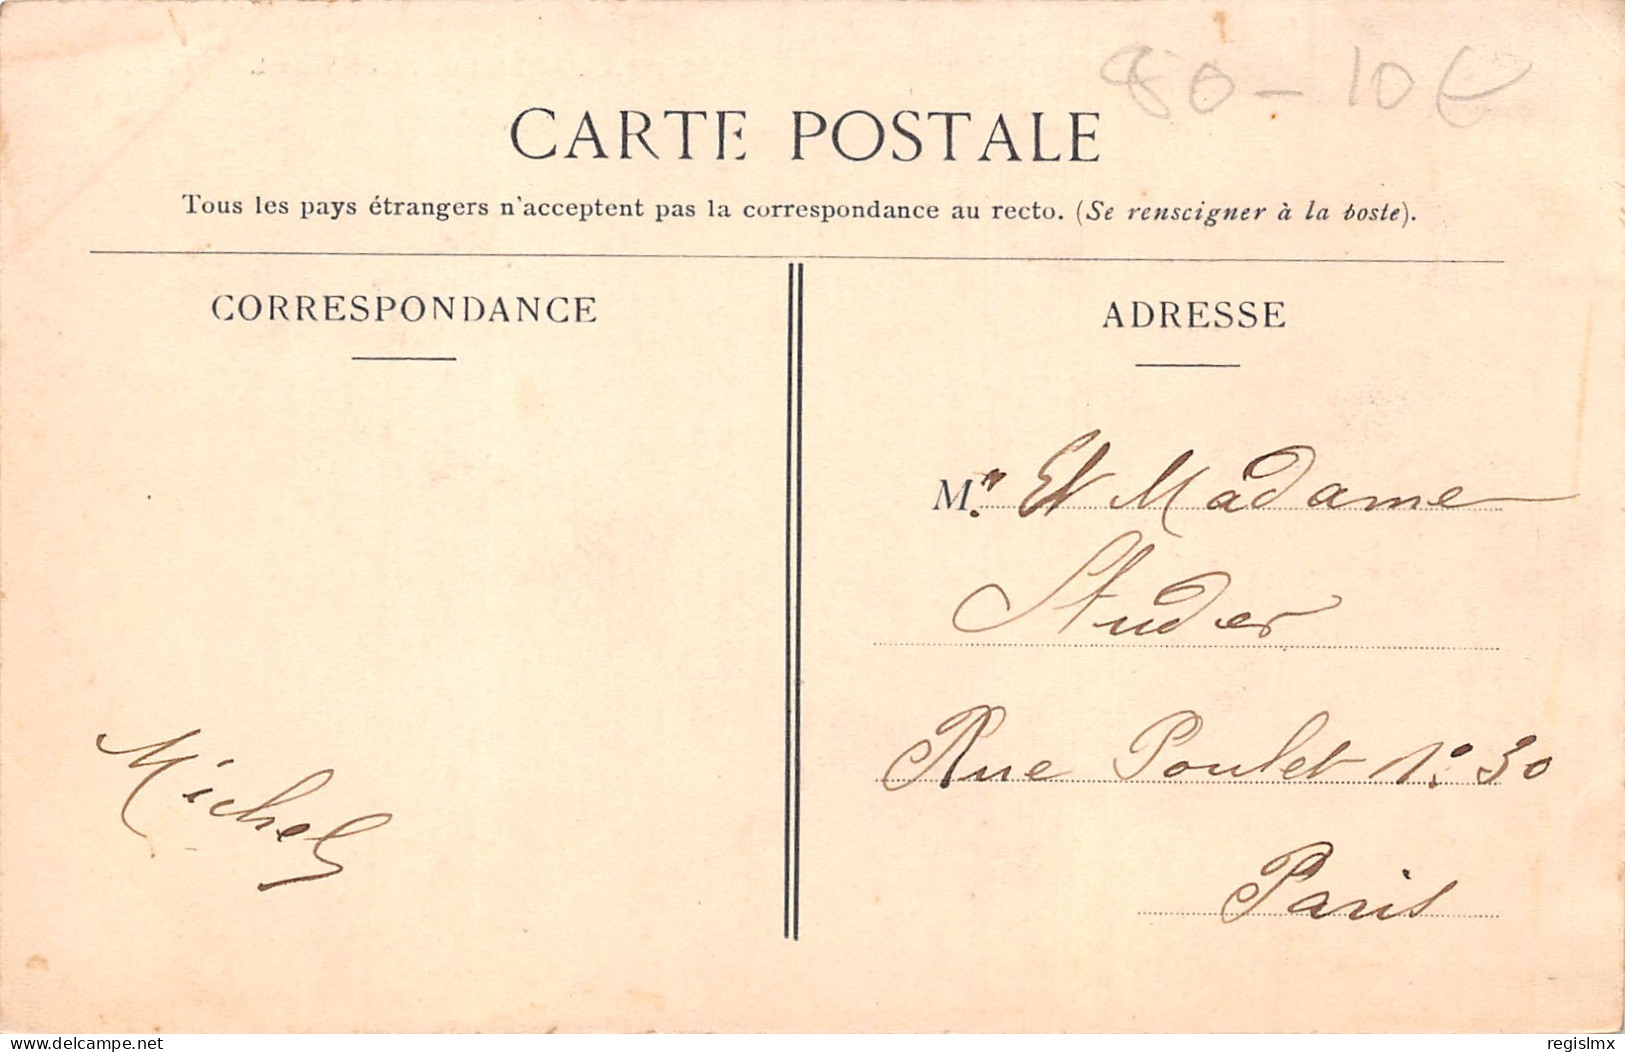 80 - 10€
CARTE POSTALE
Tous les pays étrangers n'acceptent pas la correspondance au recto. (Se renseigner à la poste).
CORRESPONDANCE
ADRESSE
M.r Et Madame
Studer
Rue Poulet N° 30
Paris
Michel
delcampe.net
regislmx